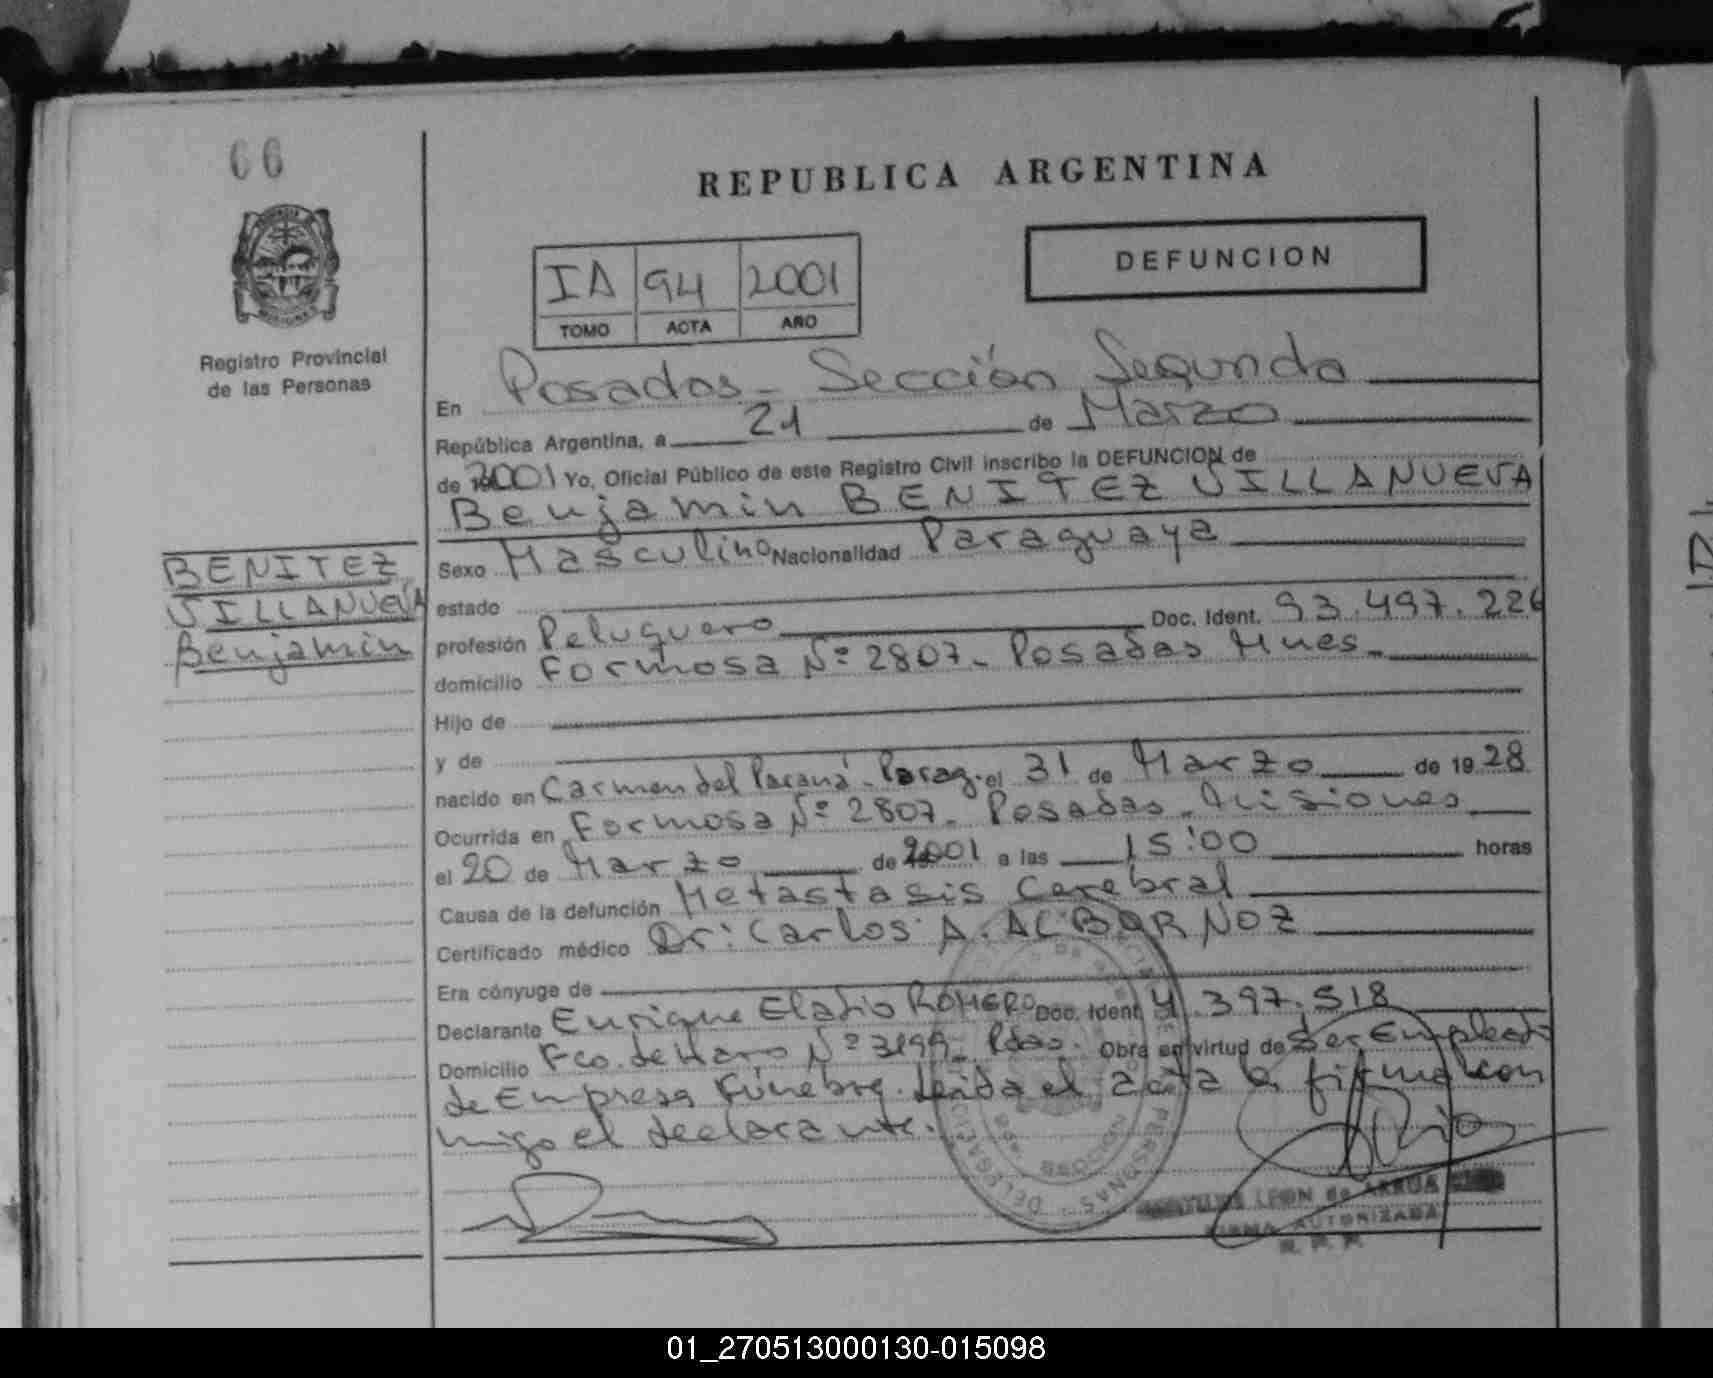 66
REPUBLICA ARGENTINA
DEFUNCION
IA 94 2001
TOMO ACTA AÑO
Registro Provincial
de las Personas
En Posadas - Sección Segunda
República Argentina, a 21 de Marzo
de 2001 Yo, Oficial Público de este Registro Civil inscribo la DEFUNCION de
Benjamin BENITEZ VILLANUEVA
BENITEZ
VILLANUEVA
Benjamin
Sexo Masculino Nacionalidad Paraguaya
estado
profesión Peluquero Doc. Ident. 93.497.226
domicilio Formosa Nº 2807 - Posadas Mnes -
Hijo de
y de
nacido en Carmen del Paraná - Parag. el 31 de Marzo de 1928
Ocurrida en Formosa Nº 2807 - Posadas - Misiones
el 20 de Marzo de 2001 a las 15:00 horas
Causa de la defunción Metastasis Cerebral
Certificado médico Dr: Carlos A. ALBORNOZ
Era cónyuge de
Declarante Enrique Eladio ROMERO Doc. Ident. 4.397.518
Domicilio Fco. de Haro Nº 3199 - Pdas. Obra en virtud de Ser Empleado
de Empresa Fúnebre. Leida el acta la firma con
migo el declarante.
LEON de ARRUA
FIRMA AUTORIZADA
R. P. P.
01_270513000130-015098